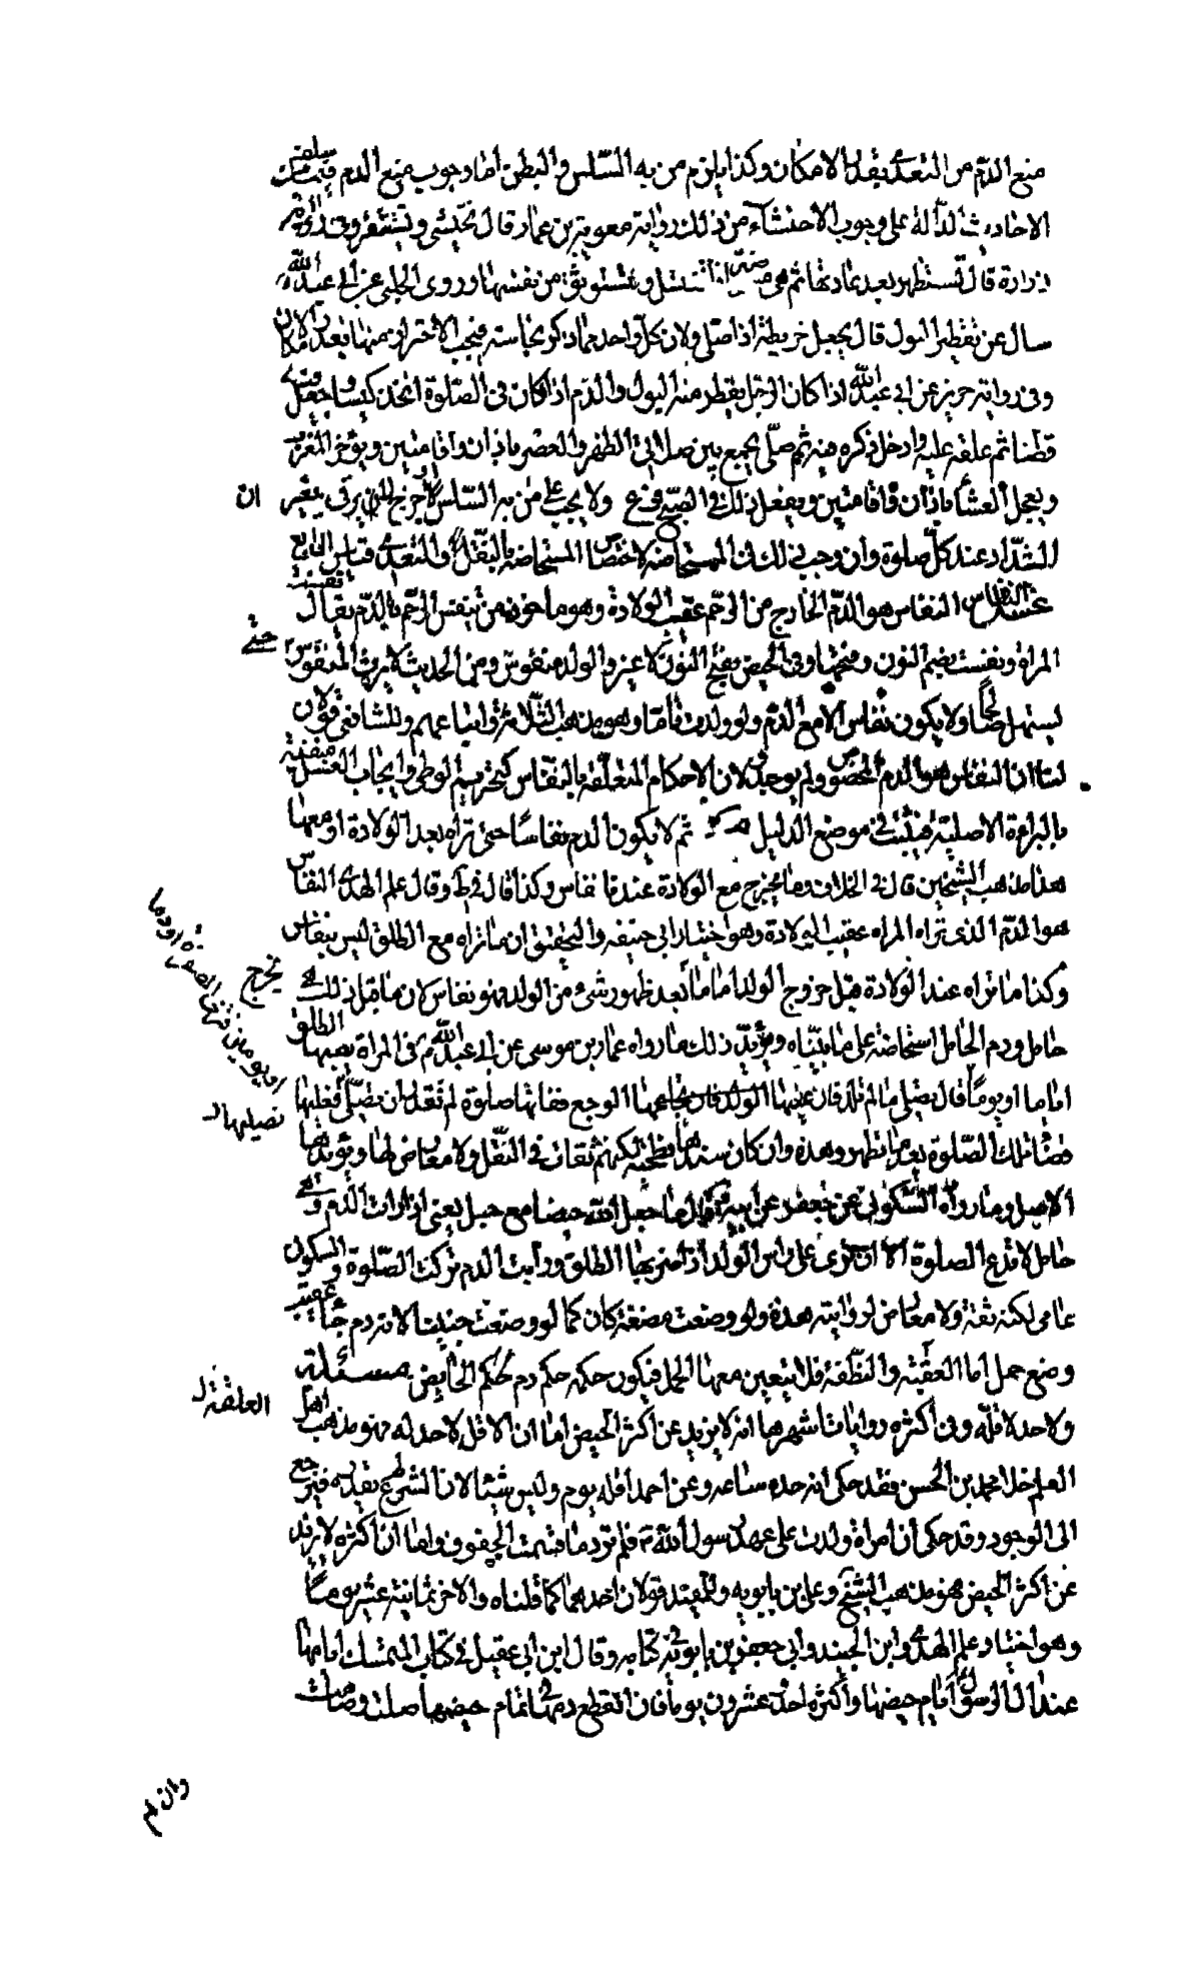 منع الدم من التعدي بقدر الامكان وكذا يلزم من به السلس والبطن اما وجوب منع الدم
الاحاديث الدالة على وجوب الاحتشاء من ذلك رواية معوية بن عمار قال تحتشى وتستثفر وفى رواية
زرارة قال تستظهر بعد عادتها ثم هى تغتسل وتستوثق من نفسها وروى الحلبى عن ابى عبد الله
سال عن تقطير البول قال يجعل خريطة اذا صلى ولان كل واحد مما ذكر نجاسته فيجب الاحتراز منها بقدر الامكان
وفى رواية حريز عن ابى عبد الله اذا كان الرجل يقطر منه البول والدم اذا كان فى الصلوة اتخذ كيسا وجعل فيه
قطنا ثم علقه عليه وادخل ذكره فيه ثم صلى يجمع بين صلاتى الظهر والعصر باذان واقامتين ويؤخر المغرب
ويعجل العشاء باذان واقامتين ويفعل ذلك فى الصبح فرع ولا يجب على من به السلس او جرح لا يرقى تغيير ان
الشداد عند كل صلوة وان وجب ذلك فى المستحاضة لاختصاص المستحاضة بالنقل والتعدى قياس الرابع
غسل النفاس النفاس هو الدم الخارج من الرحم عقيب الولادة وهو ماخوذ من تنفس الرحم بالدم يقال نفست
المراة ونفست بضم النون وفتحها وفى الحيض بفتح النون لا غير والولد منفوس ومنه الحديث لا يرث المنفوس حتى
يستهل صائحا ولا يكون نفاس الا مع الدم ولو ولدت تاما وهو مذهب علمائهم وللشافعى قولان
لنا ان النفاس هو الدم المخصوص ولم يوجد ولان الاحكام المتعلقة بالنفاس كتحريم الوطى وايجاب الغسل منفية
بالبراءة الاصلية فيثبت فى موضع الدليل ثم لا يكون الدم نفاسا حتى تراه بعد الولادة او معها
هذا مذهب الشيخين قال فى الخلاف وما يخرج مع الولادة عندنا نفاس وكذا قال فى ط وقال علم الهدى النفاس
هو الدم الذى تراه المراه عقيب الولادة وهو اختيار ابى حنيفة والتحقيق ان ما تراه مع الطلق ليس بنفاس
وكذا ما تراه عند الولادة قبل خروج الولد اما ما يخرج بعد ظهور شىء من الولد فهو نفاس لان ما قبل ذلك هى
حامل ودم الحامل استحاضة على ما بيناه ويؤيد ذلك ما رواه عمار بن موسى عن ابى عبد الله فى المراة يصيبها الطلق
اياما او يوما او يومين ترى الصفرة او دما قال تصلى ما لم تلد فان غلبها الوجع ففاتها صلوة لم تقدر ان تصليها فعليها
قضاء تلك الصلوة بعد ما تطهر وهذه وان كان سندها فطحية لكنهم ثقات فى النقل ولا معارض لها ويؤيدها
الاصل وما رواه السكونى عن جعفر عن ابيه قال ما جعل الله حيضا مع حبل يعنى اذا رات الدم وهى
حامل لا تدع الصلوة الا ان ترى على راس الولد اذا ضربها الطلق ورات الدم تركت الصلوة والسكونى
عامى لكنه ثقة ولا معارض لروايته هذه ولو وضعت مضغة كان كما لو وضعت جنينا لانه دم جاء عقيب
وضع حمل اما العلقة والنطفة فلا يتعين معها الحمل فيكون حكمه حكم دم الحايض مسئلة
ولا حد لاقله وفى اكثره روايات اشهرها انه لا يزيد عن اكثر الحيض اما ان الاقل لا حد له فهو مذهب اهل
العلم خلا محمد بن الحسن فقد حكى انه حده ساعه وعن احمد اقله يوم وليس شيئا لان الشرع لم يقدره فيرجع
الى الوجود وقد حكى ان امراة ولدت على عهد رسول الله ص فلم تر دما فسميت الجفوف واما ان اكثره لا يزيد
عن اكثر الحيض فهو مذهب الشيخ وعلى بن بابويه وللمفيد قولان احدهما كما قلناه والاخر ثمانية عشر يوما
وهو اختيار علم الهدى وابن الجنيد وابى جعفر بن بابويه فى كتابه وقال ابن ابى عقيل فى كتاب المتمسك ايامها
عند ال الرسول ايام حيضها واكثره احد وعشرون يوما فان انقطع دمها فى تمام حيضها صلت وصامت
وان لم